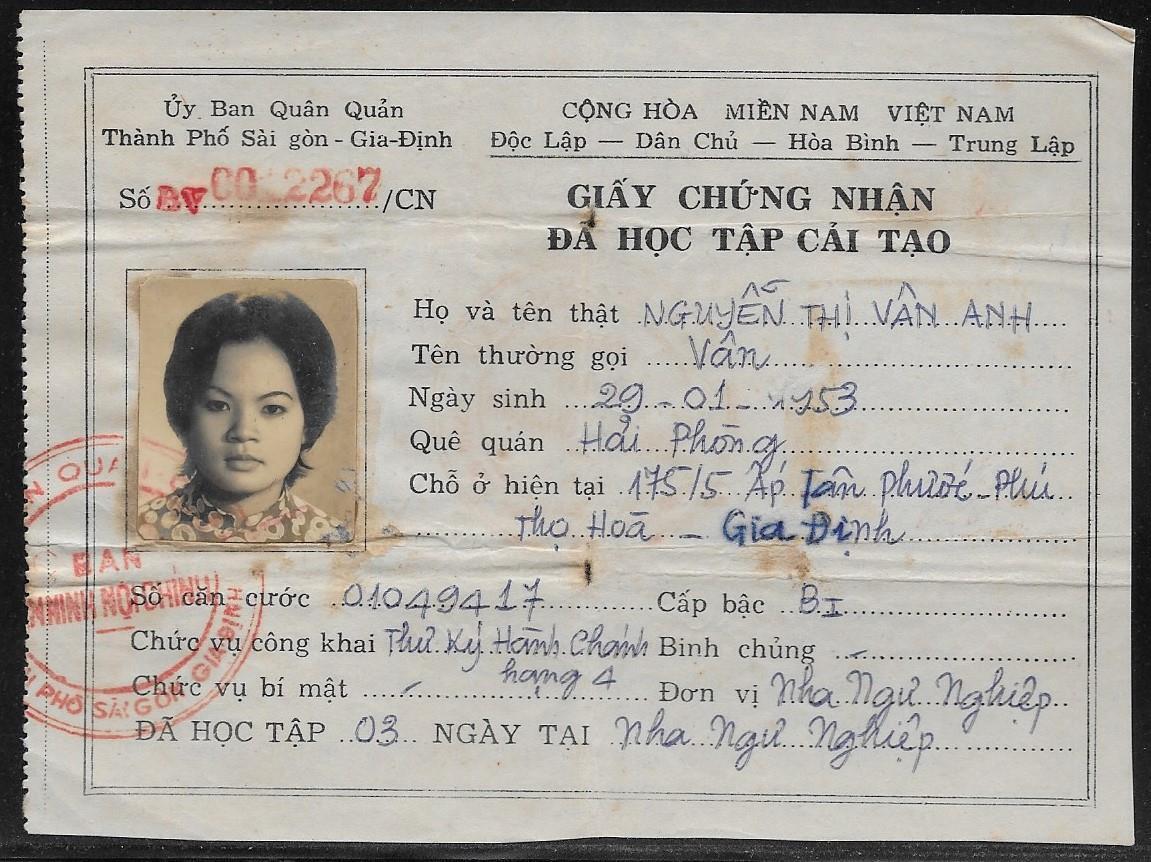 Ủy Ban Quân Quản
Thành Phố Sài gòn - Gia-Định
CỘNG HÒA MIỀN NAM VIỆT NAM
Độc Lập — Dân Chủ — Hòa Bình — Trung Lập
Số BV 2267/CN
GIẤY CHỨNG NHẬN
ĐÃ HỌC TẬP CẢI TẠO
Họ và tên thật NGUYỄN THỊ VÂN ANH
Tên thường gọi Vân
Ngày sinh 29-01-1953
Quê quán Hải Phòng
Chỗ ở hiện tại 175/5 Ấp Tân Phú
Thọ Hoà - Gia Định
Số căn cước 01049417 Cấp bậc BI
Chức vụ công khai Thư Ký Hành Chánh Binh chủng
hạng 4
Chức vụ bí mật Đơn vị Nha Ngư Nghiệp
ĐÃ HỌC TẬP 03 NGÀY TẠI Nha Ngư Nghiệp
BAN
NINH NỘI CHÍNH
PHỐ SÀI GÒN GIA ĐỊNH